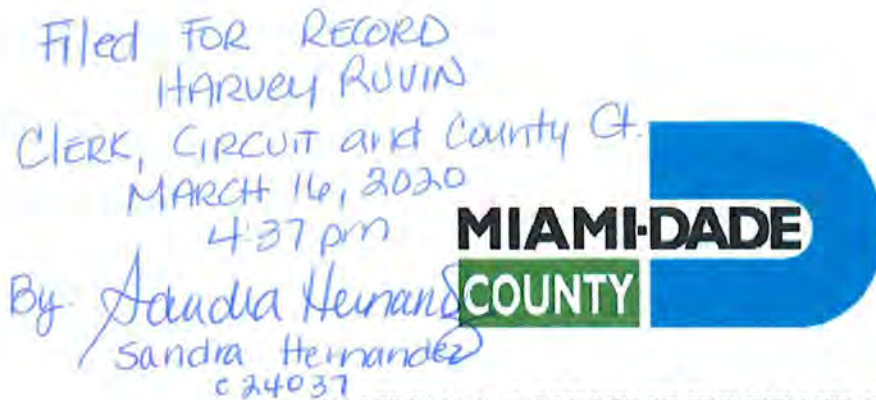 Filed FOR RECORD
HARVEY RUVIN
CLERK, CIRCUIT and County Ct.
MARCH 16, 2020
4:37 pm
By: Sandra Hernandez
Sandra Hernandez
c 24037
MIAMI-DADE
COUNTY